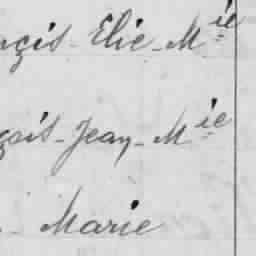 nçis - Elie - Mie
çois - Jean - Mie
- Marie